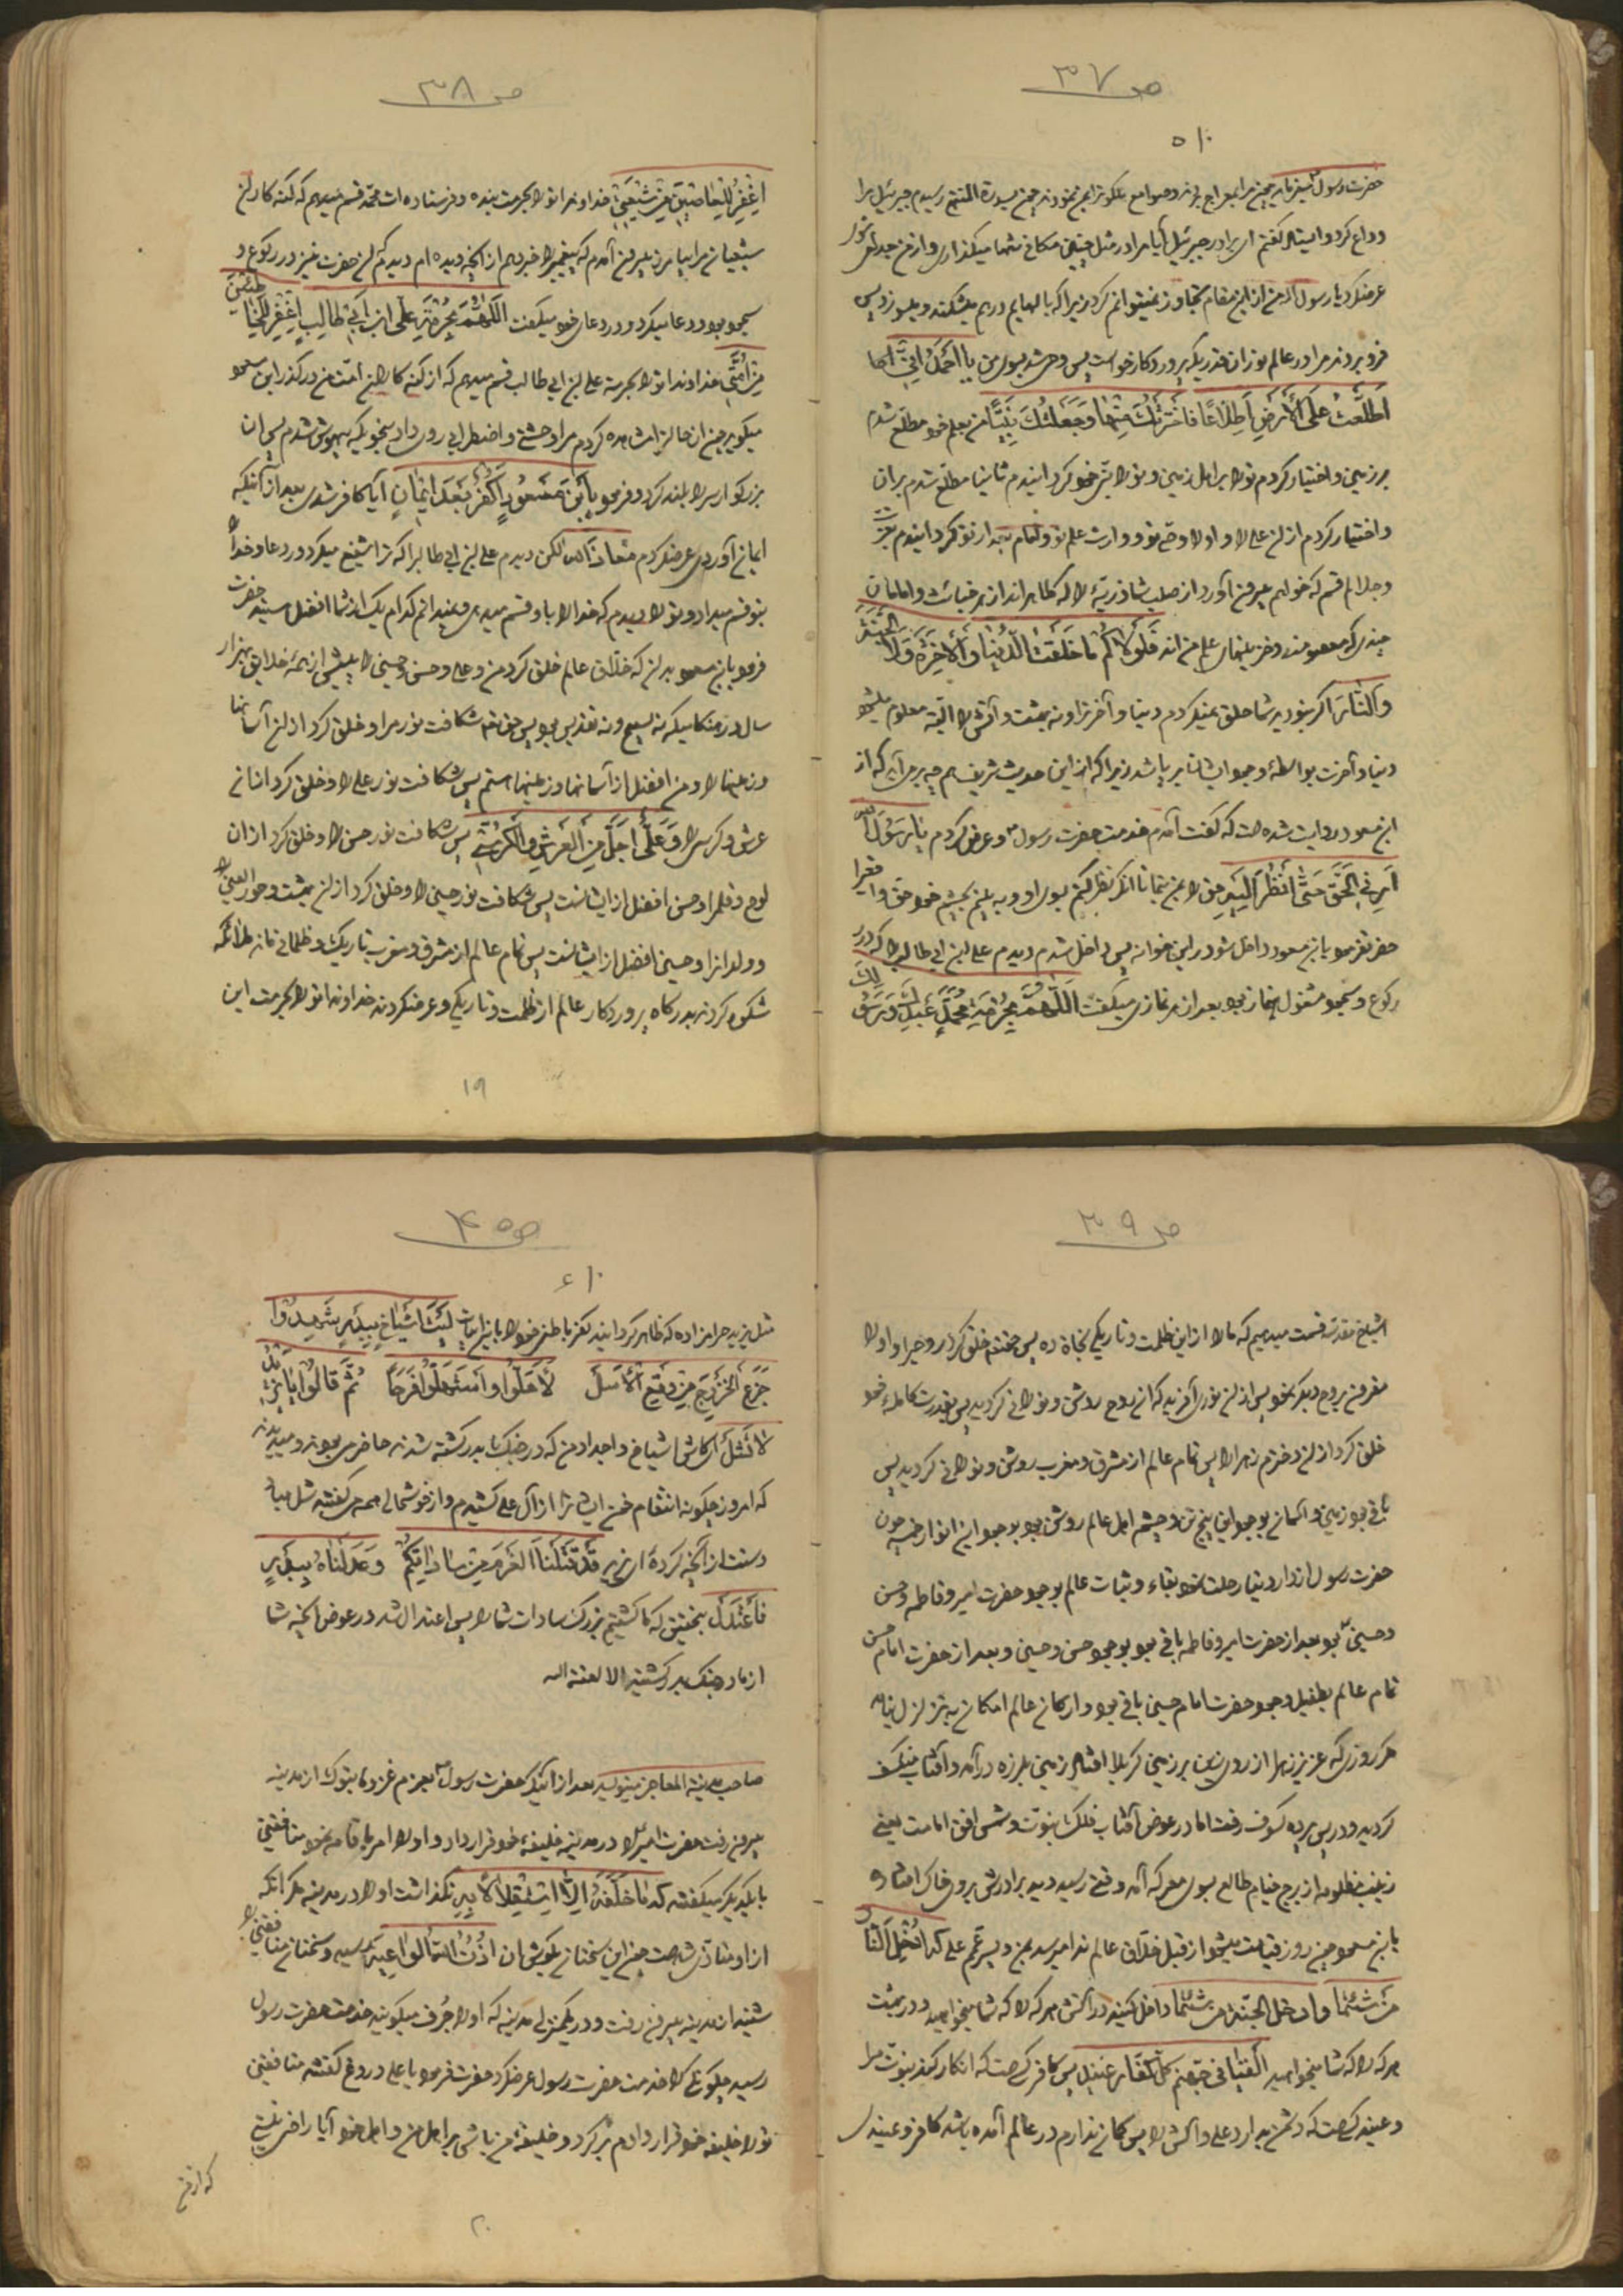 ص ۳۷
۱۰ ۵
حضرت رسول میفرماید چون مرا بمعراج بردند و صوامع ملکوترا بمن نمودند چون بسدرة المنتهی رسیدم جبرئیل مرا
وداع کرد و ایستاد گفتم ای برادر جبرئیل آیا مرا در مثل چنین مکانی تنها میگذاری و از من جدا میشوی
عرضکرد یا رسول الله من از این مقام تجاوز نمیتوانم کرد زیرا که بالهایم درهم میشکند و میسوزد پس
فرو بردند مرا در عالم نور آن قدریکه پروردکار خواست پس وحی شد بسوی من یا احمد انی
اطلعت علی الارض اطلاعا فاخترتک منها و جعلتک نبیا من بعلم خود مطلع شدم
بر زمین و اختیار کردم تو را بر اهل زمین و تو را نبی خود کردانیدم ثانیا مطلع شدم بر آن
و اختیار کردم از آن علی را و او را وصی تو و وارث علم تو و امام بعد از تو کردانیدم بعزت
و جلالم قسم که خواهم بیرون آورد از صلب شما ذریه را که طاهر اند از هر خباثت و امامان
چندی که معصومند و خزینهای علم من اند فلولاکم ما خلقت الدنیا و الاخرة و لا الجنة
و النار اکر نبودید شما خلق نمیکردم دنیا و آخرترا و نه بهشت و آتش را البته معلوم میشود
دنیا و آخرت بواسطهٔ وجود ایشان برپا شد زیرا که از این حدیث شریف هم چه برمی آید که از
ابن مسعود روایت شده است که گفت آمدم خدمت حضرت رسول و عرض کردم یا رسول الله
ارنی الحق حتی انظر الیه حق را بمن بنما تا آنکه نظر کنم بسوی او و به بینم بچشم خود حق را
حضرت فرمود یا بن مسعود داخل شو در این خوانه پس داخل شدم دیدم علی ابن ابی طالب را که در
رکوع و سجود مشغول نماز بود بعد از هر نمازی میگفت اللهم بحرمة محمد عبدک و رسولک
ص ۳۸
اغفر للعاصین من شیعتی خداوندا تو را بحرمت بنده و فرستاده ات محمد قسم میدهم که گنه کاران
شیعیان مرا بیامرز بیرون آمدم که پیغمبر را خبر دهم از آنچه دیده ام دیدم که آن حضرت نیز در رکوع و
سجود بود و دعا میکرد و در دعای خود میگفت اللهم بحرمة علی ابن ابی طالب اغفر للخاطئین
من امتی خداوندا تو را بحرمت علی ابن ابی طالب قسم میدهم که از گنه کاران امت من درگذر ابن مسعود
میگوید چون آن حالرا مشاهده کردم مرا وحشتی و اضطرابی روی داد بنحویکه بیهوش شدم پس آن
بزرگوار سر را بلند کرد و فرمود یا بن مسعود اکفر بعد ایمان آیا کافر شدی بعد از آنیکه
ایمان آوردی عرضکردم معاذ الله لکن دیدم علی ابن ابی طالبرا که ترا شفیع میکرد در دعا و خدا را
بتو قسم میداد و تو را دیدم که خدا را باو قسم میدهی و نمیدانم کدام یک از شما افضل هستید حضرت
فرمود یا بن مسعود بدان که خلاق عالم خلق کرد من و علی و حسن و حسین را پیش از همهٔ خلایق بهزار
سال در هنگامیکه نه تسبیح و نه تقدیس بود پس حق تعالی شکافت نور مرا و خلق کرد از آن آسمانها
و زمینها را و من افضل از آسمانها و زمینها هستم پس شکافت نور علی را و خلق کرد از آن
عرش و کرسی را و علی اجل من العرش و الکرسی پس شکافت نور حسن را و خلق کرد از آن
لوح و قلم را و حسن افضل از ایشانست پس شکافت نور حسین را و خلق کرد از آن بهشت و حور العین
و ولدانرا و حسین افضل از ایشانست پس تمام عالم از مشرق و مغرب تاریک و ظلمانی ماند ملائکه
شکوه کردند بدرکاه پروردکار عالم از ظلمت و تاریکی و عرضکردند خداوندا تو را بحرمت این
۱۹
ص ۳۹
اشباح مقدسه قسمت میدهیم که ما را از این ظلمت و تاریکی نجاة ده پس حقتعالی خلق کرد روحی را و او را
مقرون بروح دیکر نمود پس از آن نوری آفرید که آن روح روشن و نورانی کردید پس بقدرت کاملهٔ خود
خلق کرد از آن دخترم زهرا را پس تمام عالم از مشرق و مغرب روشن و نورانی کردید پس
باقی بود زمین و آسمان بوجود این پنج تن و چشم اهل عالم روشن بود بوجود این انوار خمسه چون
حضرت رسول از دار دنیا رحلت نمود بقاء و ثبات عالم بوجود حضرت امیر و فاطمه و حسن
و حسین بود و بعد از حضرت امیر و فاطمه باقی بود بوجود حسن و حسین و بعد از حضرت امام حسن
تمام عالم بطفیل وجود حضرت امام حسین باقی بود و ارکان عالم امکان به تزلزل نیامد
مکر روزی که عزیز زهرا از روی زین بر زمین کربلا افتاد زمین بلرزه درآمد و آفتاب منکسف
کردید و در پس پرده کسوف رفت اما در عوض آفتاب فلک نبوت و شمس افق امامت یعنی
زینب مظلومه از برج خیام طالع بسوی معرکه آمد وقتی رسید دید برادرش بروی خاک افتاده
یا بن مسعود چون روز قیامت میشود از قبل خلاق عالم ندا میرسد بمن و پسر عمم علی که ادخل النار
من شئتما و ادخل الجنة من شئتما داخل کنید در آتش هر که را که شما میخواهید و در بهشت
هر که را که شما میخواهید القیا فی جهنم کل کفار عنید پس کافر کسیست که انکار کند نبوت مرا
و عنید کسیست که دشمن بدارد علی و آلش را پس کمان ندارم در عالم آمده باشد کافر و عنیدی
ص ۴۰
۱۰ ۶
مثل یزید حرامزاده که ظاهر کردانید کفر باطن خود را باین ابیات لیت اشیاخی ببدر شهدوا
جزع الخزرج من وقع الاسل لاهلوا و استهلوا فرحا ثم قالوا یا یزید
لا تشل ای کاش اشیاخ و اجداد من که در جنک بدر کشته شدند حاضر می بودند و میدیدند
که امروز چکونه انتقام خون ایشانرا از آل علی کشیدم و از خوشحالی همه می گفتند شل مباد
دستت از آنچه کردهٔ ای یزید قد قتلنا القرم من ساداتکم و عدلناه ببدر
فاعتدل بتحقیق که ما کشتیم بزرک سادات شما را پس اعتدال شد در عوض آنچه شما
از ما در جنک بدر کشتید الا لعنة الله
صاحب مدینة المعاجز مینویسد بعد از آنیکه حضرت رسول بعزم غزوهٔ تبوک از مدینه
بیرون رفت حضرت امیر را در مدینه خلیفهٔ خود قرار داد و او را امر باقامه نمود منافقین
با یکدیکر میگفتند که ما خلفه الا استثقلا لا به نگذاشت او را در مدینه مکر آنکه
از او متاذی شد چون این سخنان بگوش آن اذن الله الواعیه رسید و سخنان منافقین را
شنید از مدینه بیرون رفت و در یکمنزلی مدینه که او را جرف میگویند خدمت حضرت رسول
رسید چگونکی را خدمت حضرت رسول عرضکرد حضرت فرمود یا علی دروغ گفتند منافقین
تو را خلیفه خود قرار دادم برکرد و خلیفهٔ من باش بر اهل من و اهل خود آیا راضی نیستی
که از من
۲۰